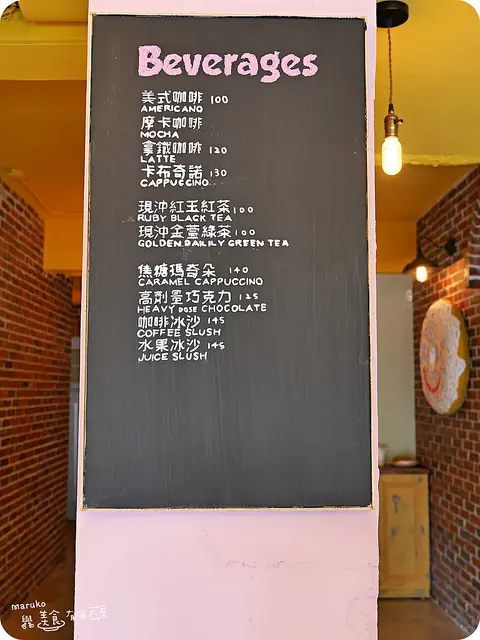 Beverages
美式咖啡 100
AMERICANO
摩卡咖啡
MOCHA
拿鐵咖啡 120
LATTE
卡布奇諾 130
CAPPUCCINO
現沖紅玉紅茶 100
RUBY BLACK TEA
現沖金萱綠茶 100
GOLDEN DAILILY GREEN TEA
焦糖瑪奇朵 140
CARAMEL CAPPUCCINO
高劑量巧克力 125
HEAVY DOSE CHOCOLATE
咖啡冰沙 145
COFFEE SLUSH
水果冰沙 145
JUICE SLUSH
maruko
美食